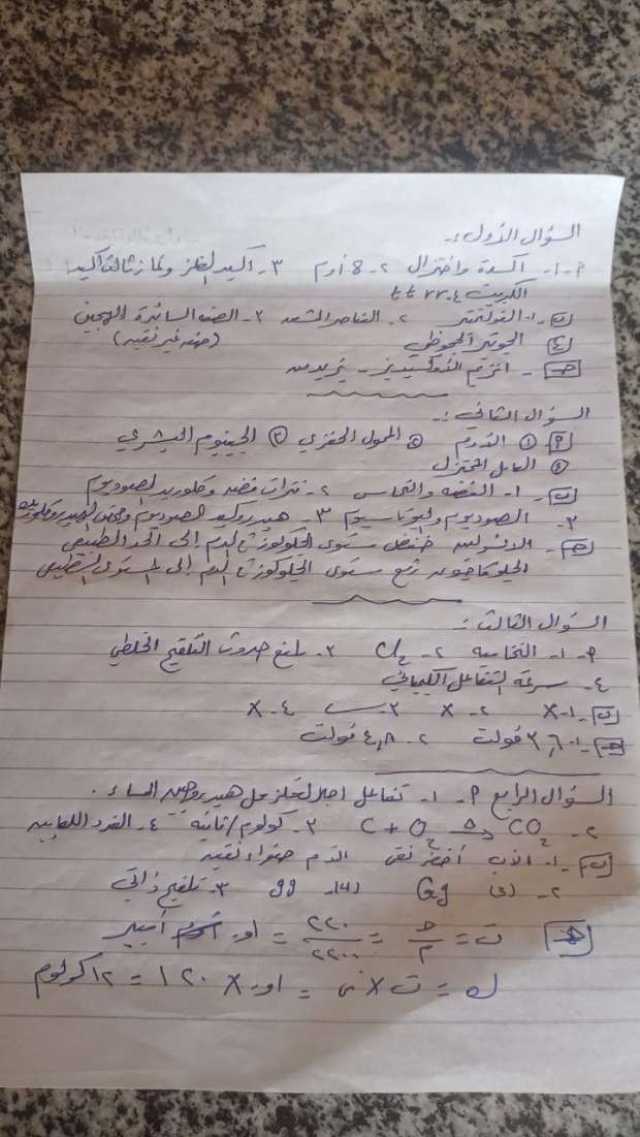 السؤال الأول :-
P -١- أكسدة واختزال ٢- 8 أوم ٣- أكسيد الفلز وغاز ثالث أكسيد
الكبريت ٤- rr tt
ب -١- الفولتميتر ٢- العناصر المشعة ٣- الصفة السائدة الهجين
(صفة غير نقية)
ج
- انزيم الأوكسيديز - يزيد من
السؤال الثاني :-
P ١ التورم ٢ المحول الحفزي ٣ الجينوم البشري
٤ العامل المختزل
ب -١- الفضة والنحاس ٢- نترات فضة وكلوريد الصوديوم
٣- الصوديوم والبوتاسيوم ٣- هيدروكسيد الصوديوم وحمض الهيدروكلوريك
ج الانسولين خفض مستوى الجلوكوز في الدم إلى الحد الطبيعي
الجلوكاجون رفع مستوى الجلوكوز في الدم إلى المستوى الطبيعي
السؤال الثالث :
P -١- النخامية ٢- Cl2 ٣- مانع حدوث التلقيح الخلطي
٤- سرعة التفاعل الكيميائي
ب -١- X ٢- X ٣- ٤- X
ج -١- ٣,٦ فولت ٢- ٤,٨ فولت
السؤال الرابع P -١- تفاعل احلال فلز محل هيدروجين الماء .
٢- C + O2 Δ> CO2 ٣- كولوم/ثانية ٤- الغدد اللعابية
ب -١- الأب أخضر نقي الأم صفراء نقية
٢- (٤) Gg (١) gg ٣- تلقيح ذاتي
ت = جـ/م = ٢٢٠/٢٢٠٠ = ٠,١ أمبير
ك = ت X ز = ٠,١ X ١٢٠ = ١٢ كولوم